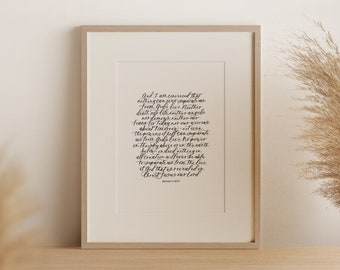 And I am convinced that
nothing can ever separate us
from God's love. Neither
death nor life, neither angels
nor demons, neither our
fears for today nor our worries
about tomorrow - not even
the powers of hell can separate
us from God's love. No power
in the sky above or in the earth
below - indeed nothing in
all creation will ever be able
to separate us from the love
of God that is revealed in
Christ Jesus our Lord